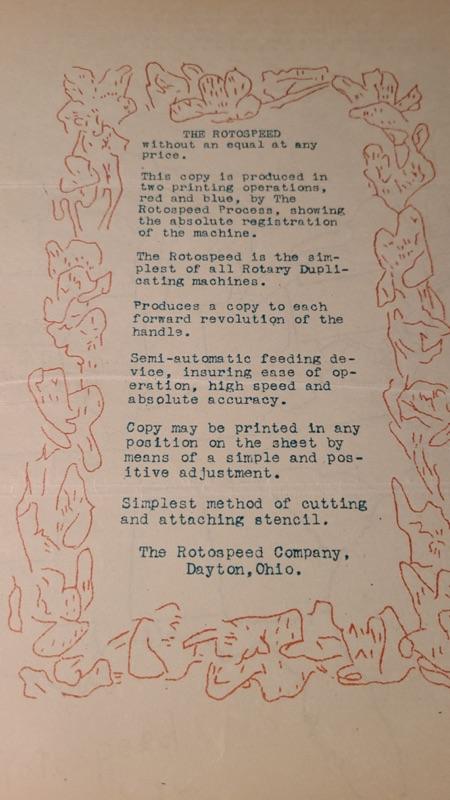 THE ROTOSPEED
without an equal at any
price.
This copy is produced in
two printing operations,
red and blue, by The
Rotospeed Process, showing
the absolute registration
of the machine.
The Rotospeed is the sim-
plest of all Rotary Dupli-
cating machines.
Produces a copy to each
forward revolution of the
handle.
Semi-automatic feeding de-
vice, insuring ease of op-
eration, high speed and
absolute accuracy.
Copy may be printed in any
position on the sheet by
means of a simple and pos-
itive adjustment.
Simplest method of cutting
and attaching stencil.
The Rotospeed Company,
Dayton,Ohio.